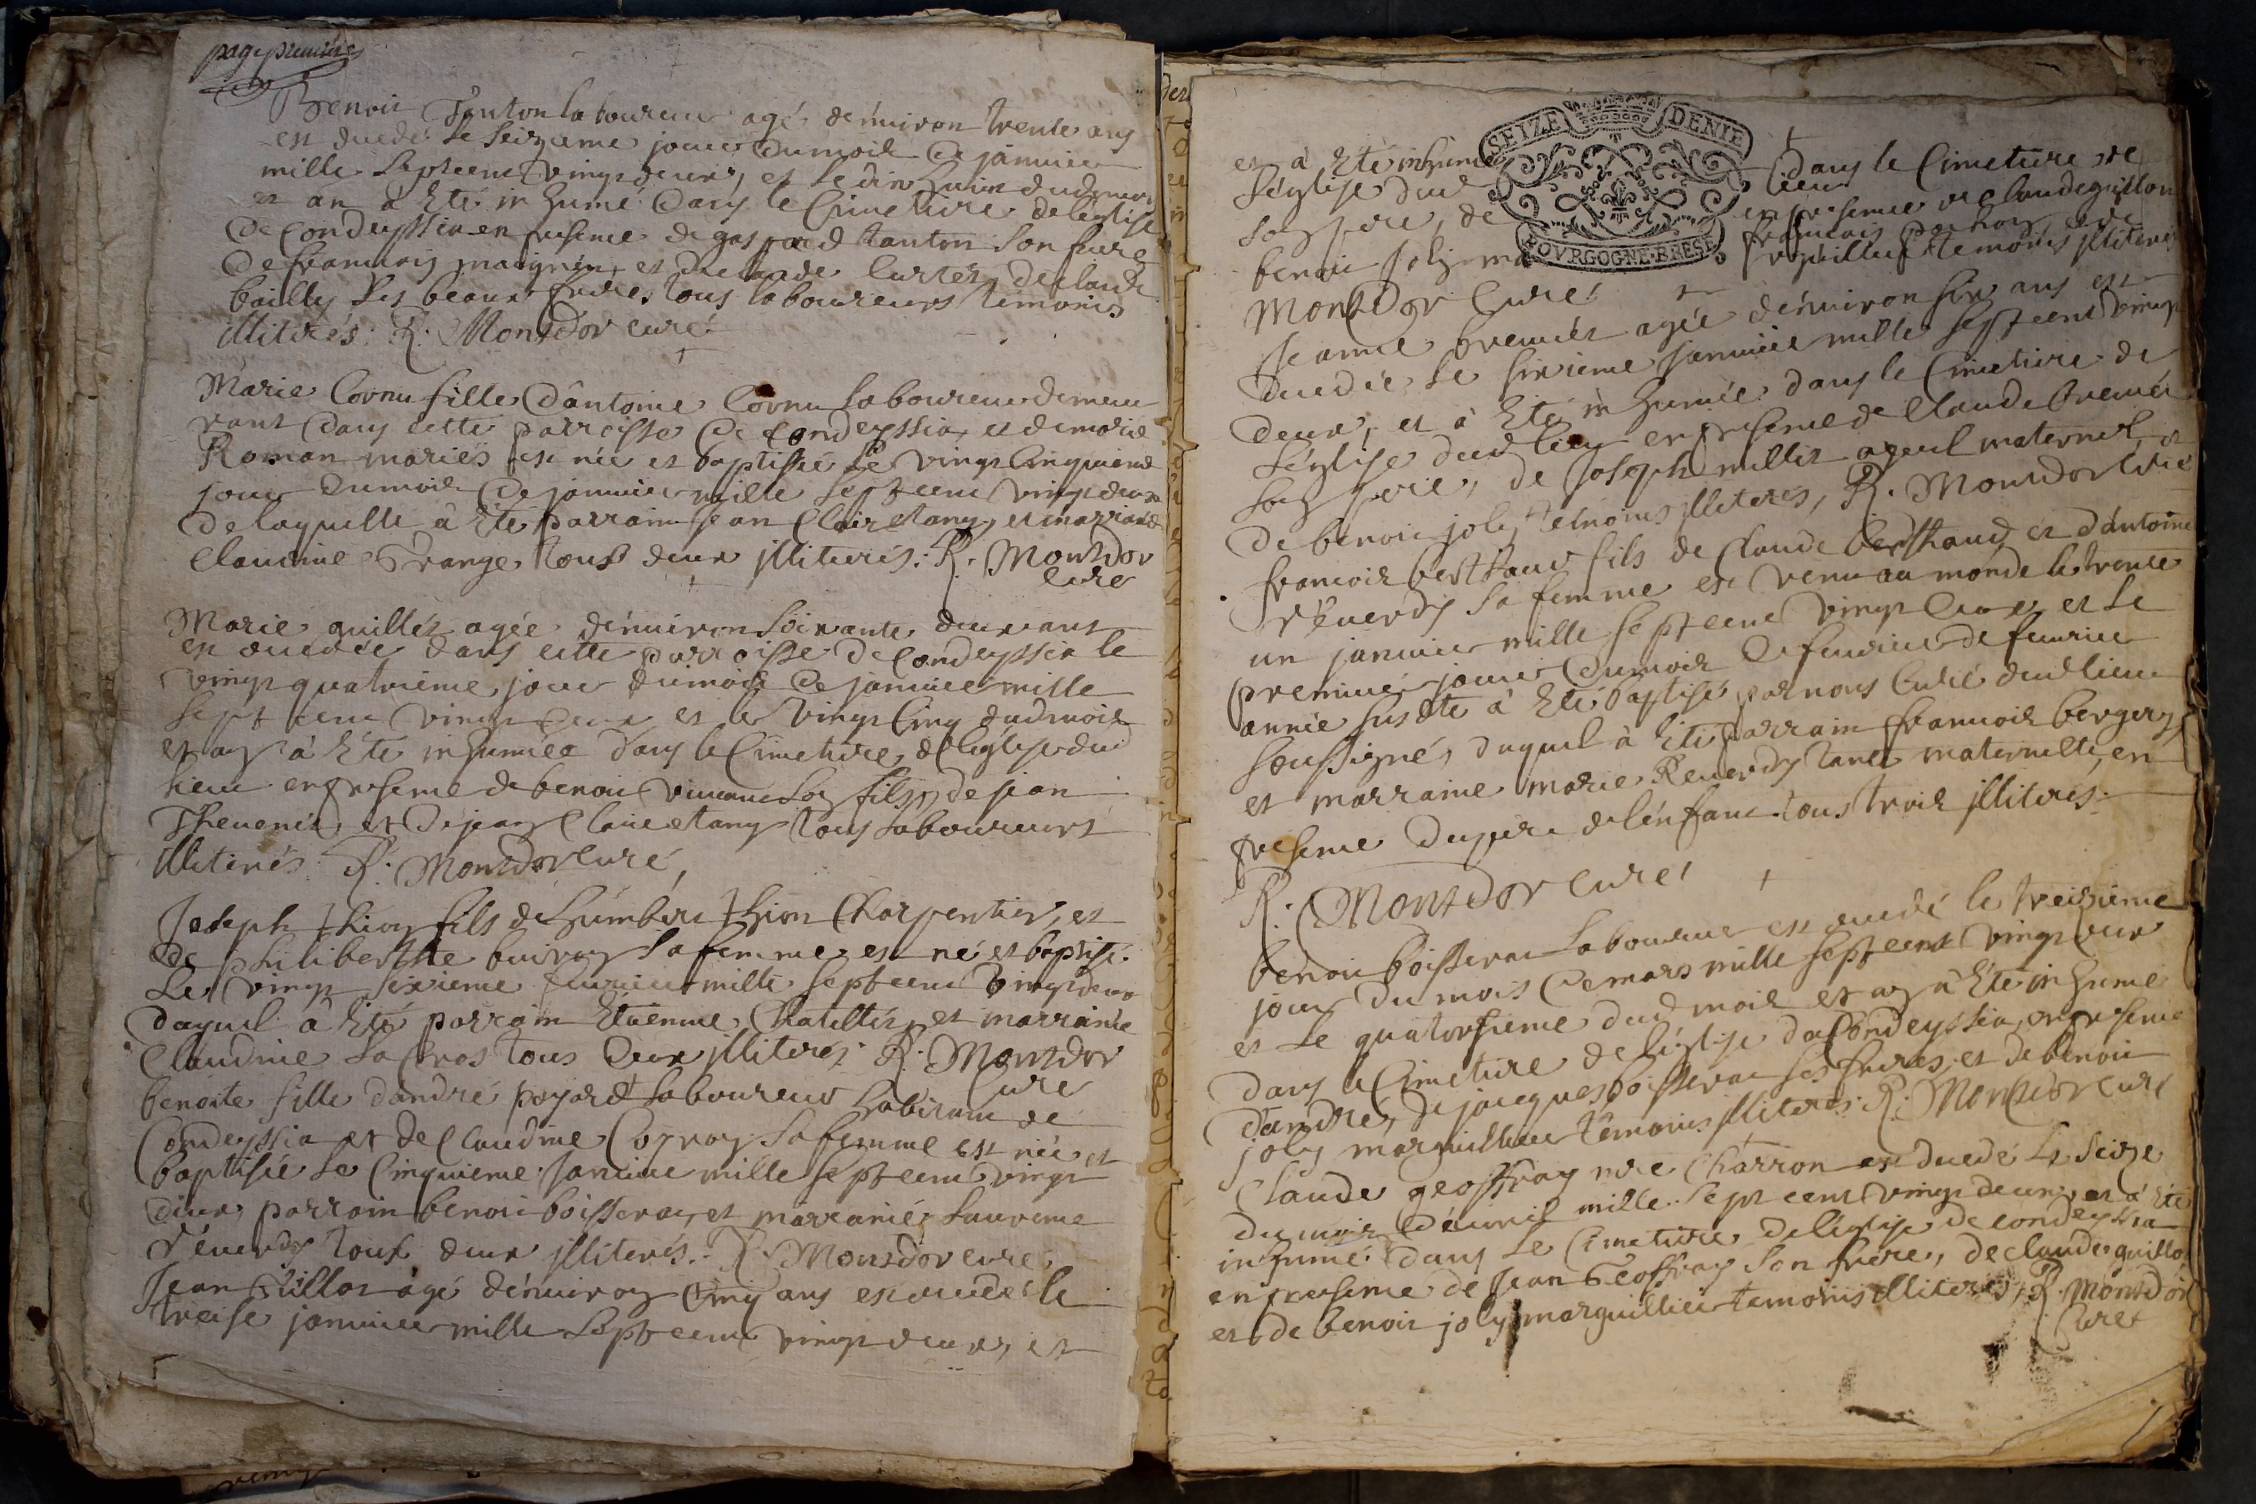 page premiere
Benoit Tanton laboureur agé dénuiron trente ans
est decedé le seizieme jour du mois de januier
mille septcent vingt deux, et le dix huit dud mois
et an à été inhumé dans le Cimetiere de leglise
de Condeyssia en presence de gaspard tanton son frere
de francois maignin, et de Claude Curtet, de Claude
bailly ses beaux freres tous laboureurs témoins
illiterés. R. Montdor curé
Marie Cornu fille d'antoine Cornu laboureur demeu
rant dans cette parroisse de Condeyssia, et de marie
Roman mariés est née et baptisée le vingt cinquieme
jour du mois de januier mille septcent vingt deux
de laquelle à été parrain jean Clairetany, et marraine
Claudine tous deux jlliterés. R. Montdor
Curé
Marie guillet agée dénuiron soixante deux ans
est decedée dans cette parroisse de Condeyssia le
vingt quatrieme jour du mois de januier mille
sept cent vingt deux et le vingt cinq dud mois
et an à été inhumée dans le Cimetiere de léglise dud
lieu en presence de benoit son fils, de jean
Theuenet, et de jean Clairetany tous laboureurs
illiterés. R. Montdor Curé
Joseph thion fils de humbert thion Charpentier, et
de philiberthe buiron sa femme est né et baptisé
Le vingt sixieme feurier mille septcent vingt deux
duquel à été parrain Etienne Chatillet, et marraine
Claudine La Cros tous deux jlliterés. R. Montdor
Curé
benoite fille dandré poyard laboureur habitant de
Condeyssia et de Claudine Coznay sa femme est née et
baptisée le Cinquieme januier mille septcent vingt
deux, parrain benoit boisserat, et marraine Laurence
réuerdy tous deux jlliterés. R. Montdor curé
Jean agé dénuiron Cinq ans est decedé le
treise januier mille septcent vingt deux, et
et à été inhumé dans le Cimetiere de
l'église dud lieu en presence de Claude guillon
son pere, de francois et de
benoit Joly marguillier témoins jlliterés
Montdor Curé
SEIZE DENIE
BOVRGOGNE·BRESE
Jeanne breuuet agée dénuiron six ans est
decedée le sixieme januier mille septcent vingt
deux, et à été inhumée dans le Cimetiere de
l'église dud lieu en presence de Claude breuuet
son pere, de Joseph millet ayeul maternel, et
de benoit joly témoins jlliterés, R. Montdor Curé
francois berthaud fils de Claude berthaud, et d'antoine
réuerdy sa femme est venu au monde le trente
un januier mille septcent vingt deux et le
premier jour du mois de feurier de feurier
année susdte à été baptisé par nous Curé dud lieu
soussigné, duquel à été parrain francois berger,
et marraine marie Reuerdy tante maternelle, en
presence du pere de lénfant tous trois jlliterés.
R. Montdor Curé
benoit boisserat laboureur est decedé le treizieme
jour du mois de mars mille septcent vingt deux
et le quatorsieme dud mois et an à été inhumé
dans le Cimetiere de léglise de Condeyssia, en presence
d'andré, de jacques boisserat ses freres, et de benoit
joly marguillier témoins jlliterés. R. Montdor Curé
Claude geoffray mre Charron est decedé le seize
du mois d'auril mille sept cent vingt deux, et à été
inhumé dans le Cimetiere de léglise de condeyssia
en presence de jean Geoffray son frere, de claude guillon
et de benoit joly marguillier temoins jlliterés, R. Montdor
Curé